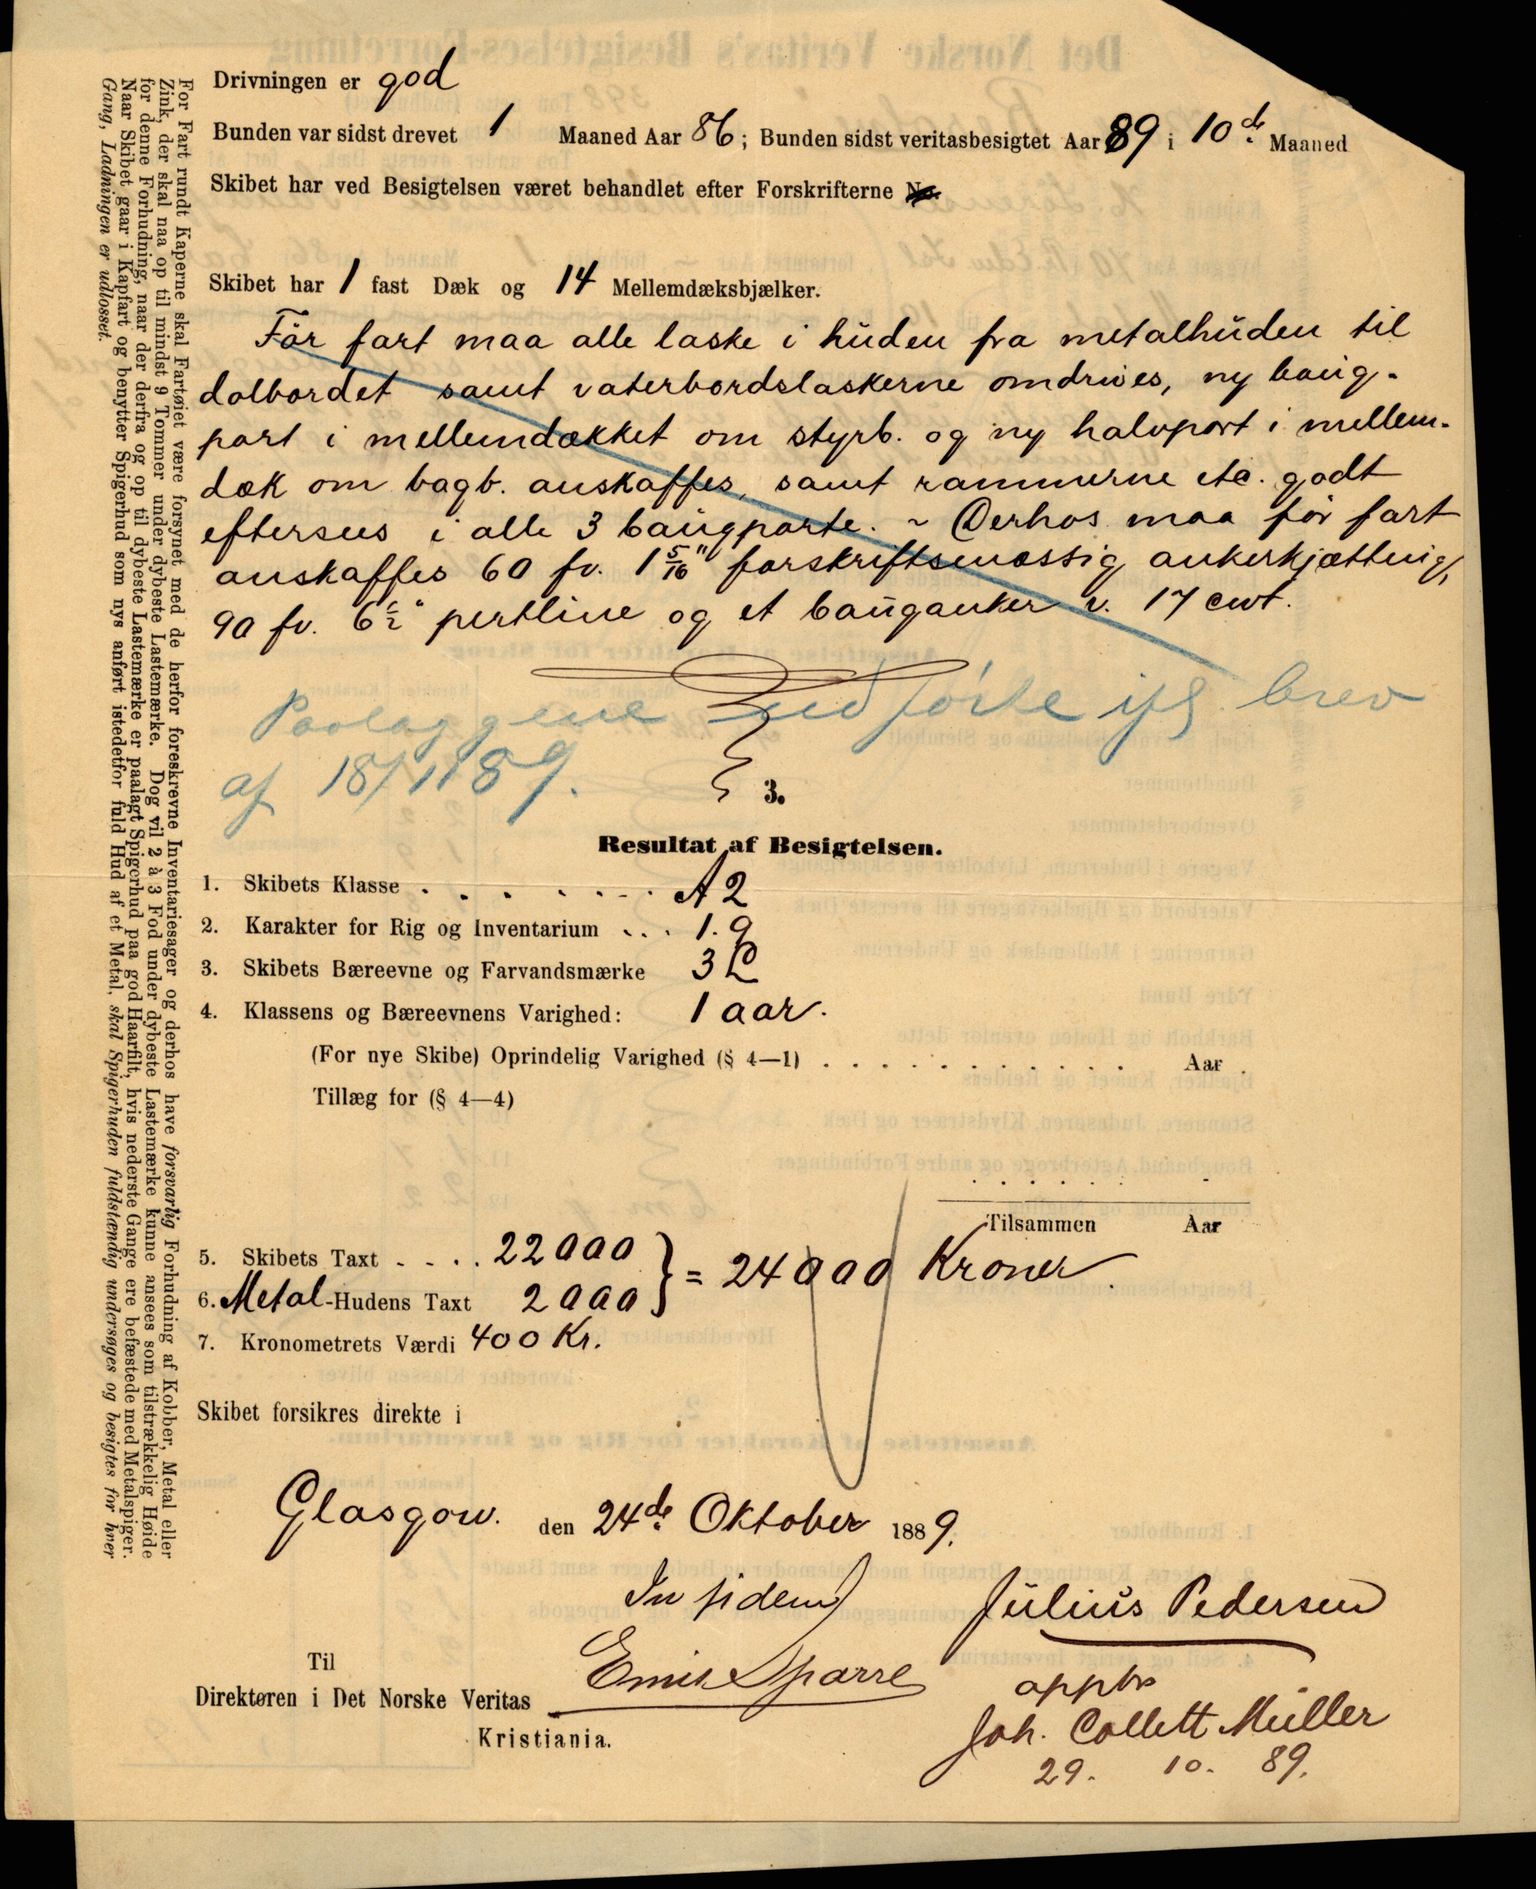 Drivningen er god
Bunden var sidst drevet 1 Maaned Aar 86; Bunden sidst veritasbesigtet Aar 89 i 10de Maaned
Skibet har ved Besigtelsen været behandlet efter Forskrifterne No.
Skibet har 1 fast Dæk og 14 Mellemdæksbjælker.
Før fart maa alle laske i huden fra metalhuden til
dolbordet samt vaterbordslaskerne omdrives, ny baug-
port i mellemdækket om styrb. og ny halvport i mellem-
dæk om bagb. anskaffes, samt rammerne etc. godt
eftersees i alle 3 baugporte. ~ Derhos maa før fart
anskaffes 60 fv. 1 5/16" forskriftsmæssig ankerkjætting,
90 fv. 6½" pertline og et bauganker v. 17 cwt.
Paalæggene udførte ifl. brev
af 18/11 89.
3.
Resultat af Besigtelsen.
1. Skibets Klasse . . . . . . . A 2
2. Karakter for Rig og Inventarium . . . 1.9
3. Skibets Bæreevne og Farvandsmærke 3 L
4. Klassens og Bæreevnens Varighed: 1 aar.
(For nye Skibe) Oprindelig Varighed (§ 4—1) . . . . . . . . . . . Aar .
Tillæg for (§ 4—4)
Tilsammen Aar
5. Skibets Taxt . . . . 22000
6. Metal-Hudens Taxt 2000 } = 24000 Kroner.
7. Kronometrets Værdi 400 Kr.
Skibet forsikres direkte i
Glasgow. den 24de Oktober 1889.
In fidem
Julius Pedersen
Emil Sparre
Til
Direktøren i Det Norske Veritas
Kristiania.
appbs
Joh. Collett Müller
29. 10. 89.
For Fart rundt Kaperne skal Fartøiet være forsynet med de herfor foreskrevne Inventariesager og derhos have forsvarlig Forhudning af Kobber, Metal eller
Zink, der skal naa op til mindst 9 Tommer under dybeste Lastemærke. Dog vil 2 à 3 Fod under dybeste Lastemærke kunne ansees som tilstrækkelig Høide
for denne Forhudning, naar der derfra og op til dybeste Lastemærke er paalagt Spigerhud paa god Haarfilt, hvis nederste Gange ere befæstede med Metalspiger.
Naar Skibet gaar i Kapfart og benytter Spigerhud som nys anført istedetfor fuld Hud af et Metal, skal Spigerhuden fuldstændig undersøges og besigtes for hver
Gang, Ladningen er udlosset.